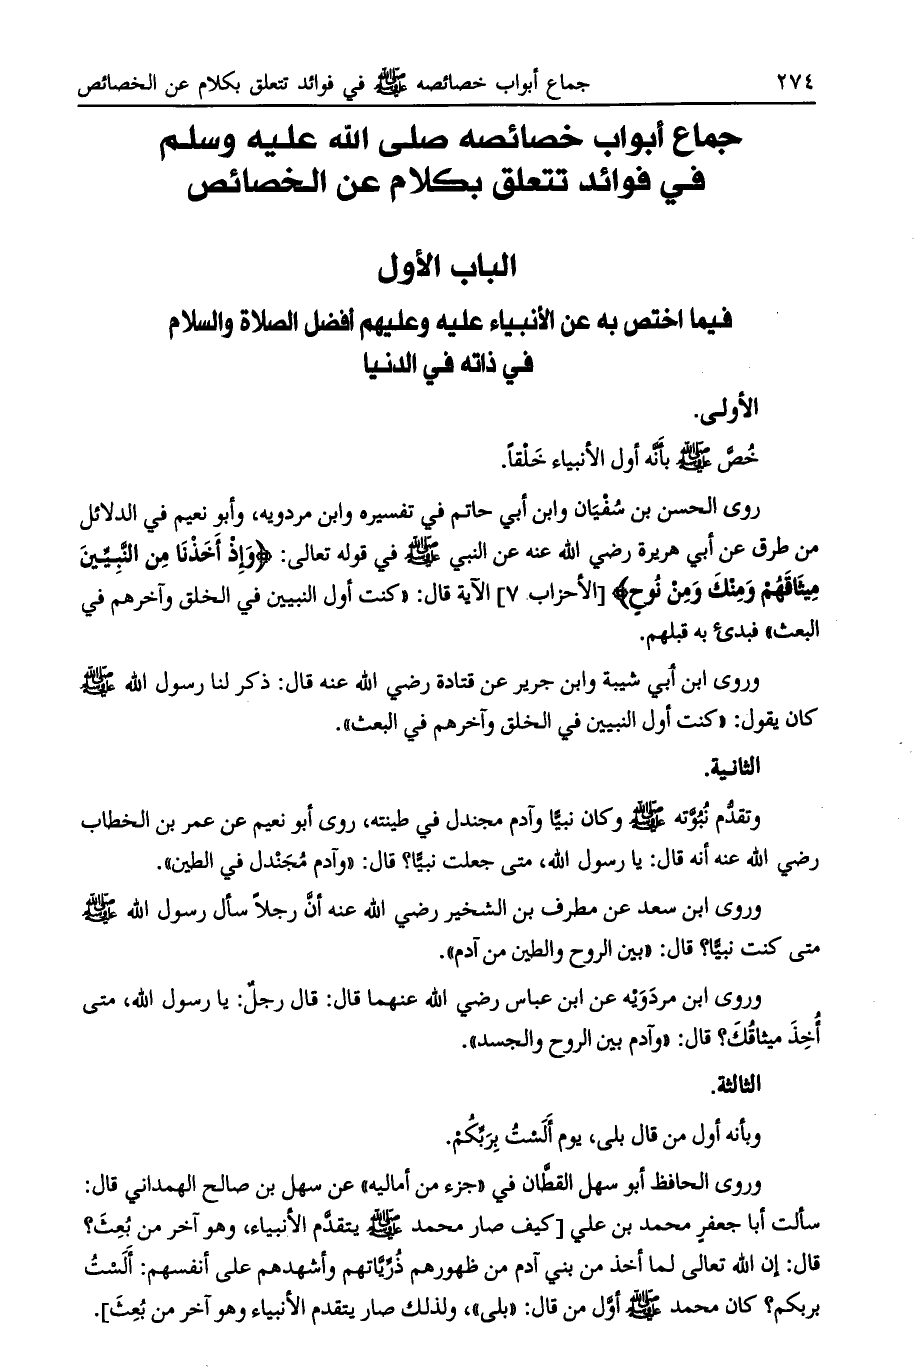 ٢٧٤ جماع أبواب خصائصه ﷺ في فوائد تتعلق بكلام عن الخصائص
جماع أبواب خصائصه صلى الله عليه وسلم
في فوائد تتعلق بكلام عن الخصائص
الباب الأول
فيما اختص به عن الأنبياء عليه وعليهم أفضل الصلاة والسلام
في ذاته في الدنيا
الأولى.
خُصَّ ﷺ بأنَّه أول الأنبياء خَلْقاً.
روى الحسن بن سُفْيَان وابن أبي حاتم في تفسيره وابن مردويه، وأبو نعيم في الدلائل
من طرق عن أبي هريرة رضي الله عنه عن النبي ﷺ في قوله تعالى: ﴿وَإِذْ أَخَذْنَا مِن النَّبِيِّينَ
مِيثَاقَهُمْ وَمِنْكَ وَمِنْ نُوحٍ﴾ [الأحزاب ٧] الآية قال: «كنت أول النبيين في الخلق وآخرهم في
البعث» فبدئ به قبلهم.
وروى ابن أبي شيبة وابن جرير عن قتادة رضي الله عنه قال: ذكر لنا رسول الله ﷺ
كان يقول: «كنت أول النبيين في الخلق وآخرهم في البعث».
الثانية.
وتقدُّم نُبُوَّته ﷺ وكان نبيًّا وآدم مجندل في طينته، روى أبو نعيم عن عمر بن الخطاب
رضي الله عنه أنه قال: يا رسول الله، متى جعلت نبيًّا؟ قال: «وآدم مُجَنْدل في الطين».
وروى ابن سعد عن مطرف بن الشخير رضي الله عنه أنَّ رجلاً سأل رسول الله ﷺ
متى كنت نبيًّا؟ قال: «بين الروح والطين من آدم».
وروى ابن مردَوَيْه عن ابن عباس رضي الله عنهما قال: قال رجلٌ: يا رسول الله، متى
أُخِذَ ميثاقُكَ؟ قال: «وآدم بين الروح والجسد».
الثالثة.
وبأنه أول من قال بلى، يوم أَلَسْتُ بِرَبِّكُمْ.
وروى الحافظ أبو سهل القطَّان في «جزء من أماليه» عن سهل بن صالح الهمداني قال:
سألت أبا جعفرٍ محمد بن علي [كيف صار محمد ﷺ يتقدَّم الأنبياء، وهو آخر من بُعِثَ؟
قال: إن الله تعالى لما أخذ من بني آدم من ظهورهم ذُرِّيَّاتهم وأشهدهم على أنفسهم: أَلَسْتُ
بربكم؟ كان محمد ﷺ أوَّل من قال: «بلى»، ولذلك صار يتقدم الأنبياء وهو آخر من بُعِثَ].